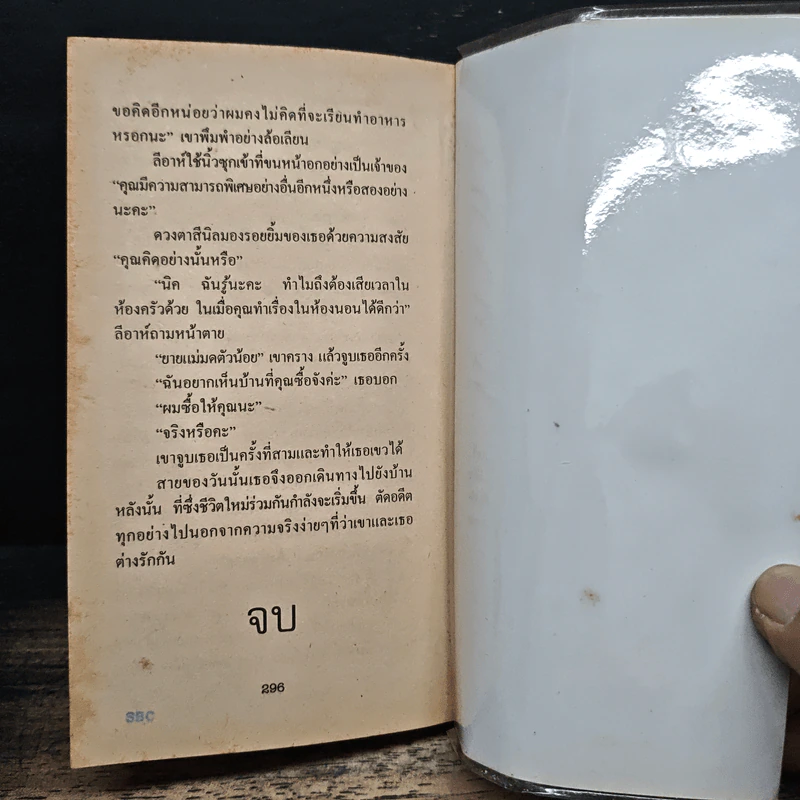 ขอคิดอีกหน่อยว่าผมคงไม่คิดที่จะเรียนทำอาหาร
หรอกนะ” เขาพึมพำอย่างล้อเลียน
ลีอาห์ใช้นิ้วซุกเข้าที่ขนหน้าอกอย่างเป็นเจ้าของ
“คุณมีความสามารถพิเศษอย่างอื่นอีกหนึ่งหรือสองอย่าง
นะคะ”
ดวงตาสีนิลมองรอยยิ้มของเธอด้วยความสงสัย
“คุณคิดอย่างนั้นหรือ”
“นิค ฉันรู้นะคะ ทำไมถึงต้องเสียเวลาใน
ห้องครัวด้วย ในเมื่อคุณทำเรื่องในห้องนอนได้ดีกว่า”
ลีอาห์ถามหน้าตาย
“ยายแม่มดตัวน้อย” เขาคราง แล้วจูบเธออีกครั้ง
“ฉันอยากเห็นบ้านที่คุณซื้อจังค่ะ” เธอบอก
“ผมซื้อให้คุณนะ”
“จริงหรือคะ”
เขาจูบเธอเป็นครั้งที่สามและทำให้เธอเขวได้
สายของวันนั้นเธอจึงออกเดินทางไปยังบ้าน
หลังนั้น ที่ซึ่งชีวิตใหม่ร่วมกันกำลังจะเริ่มขึ้น ตัดอดีต
ทุกอย่างไปนอกจากความจริงง่ายๆที่ว่าเขาและเธอ
ต่างรักกัน
จบ
296
SBC